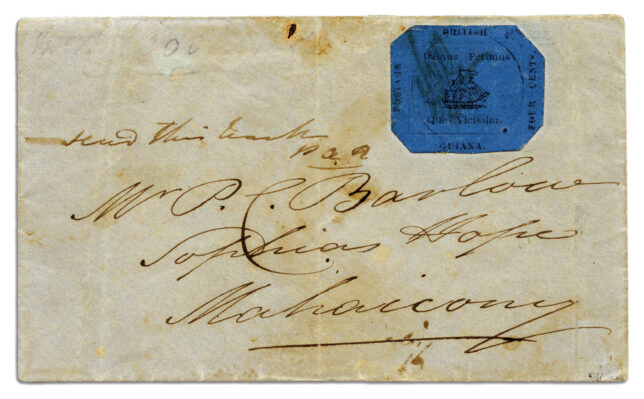 BRITISH
Damus Petimus
Que Vicissim.
POSTAGE
FOUR CENTS.
GUIANA.
send this back
Mr P. C. Barlow
Sophias Hope
Mahaicony